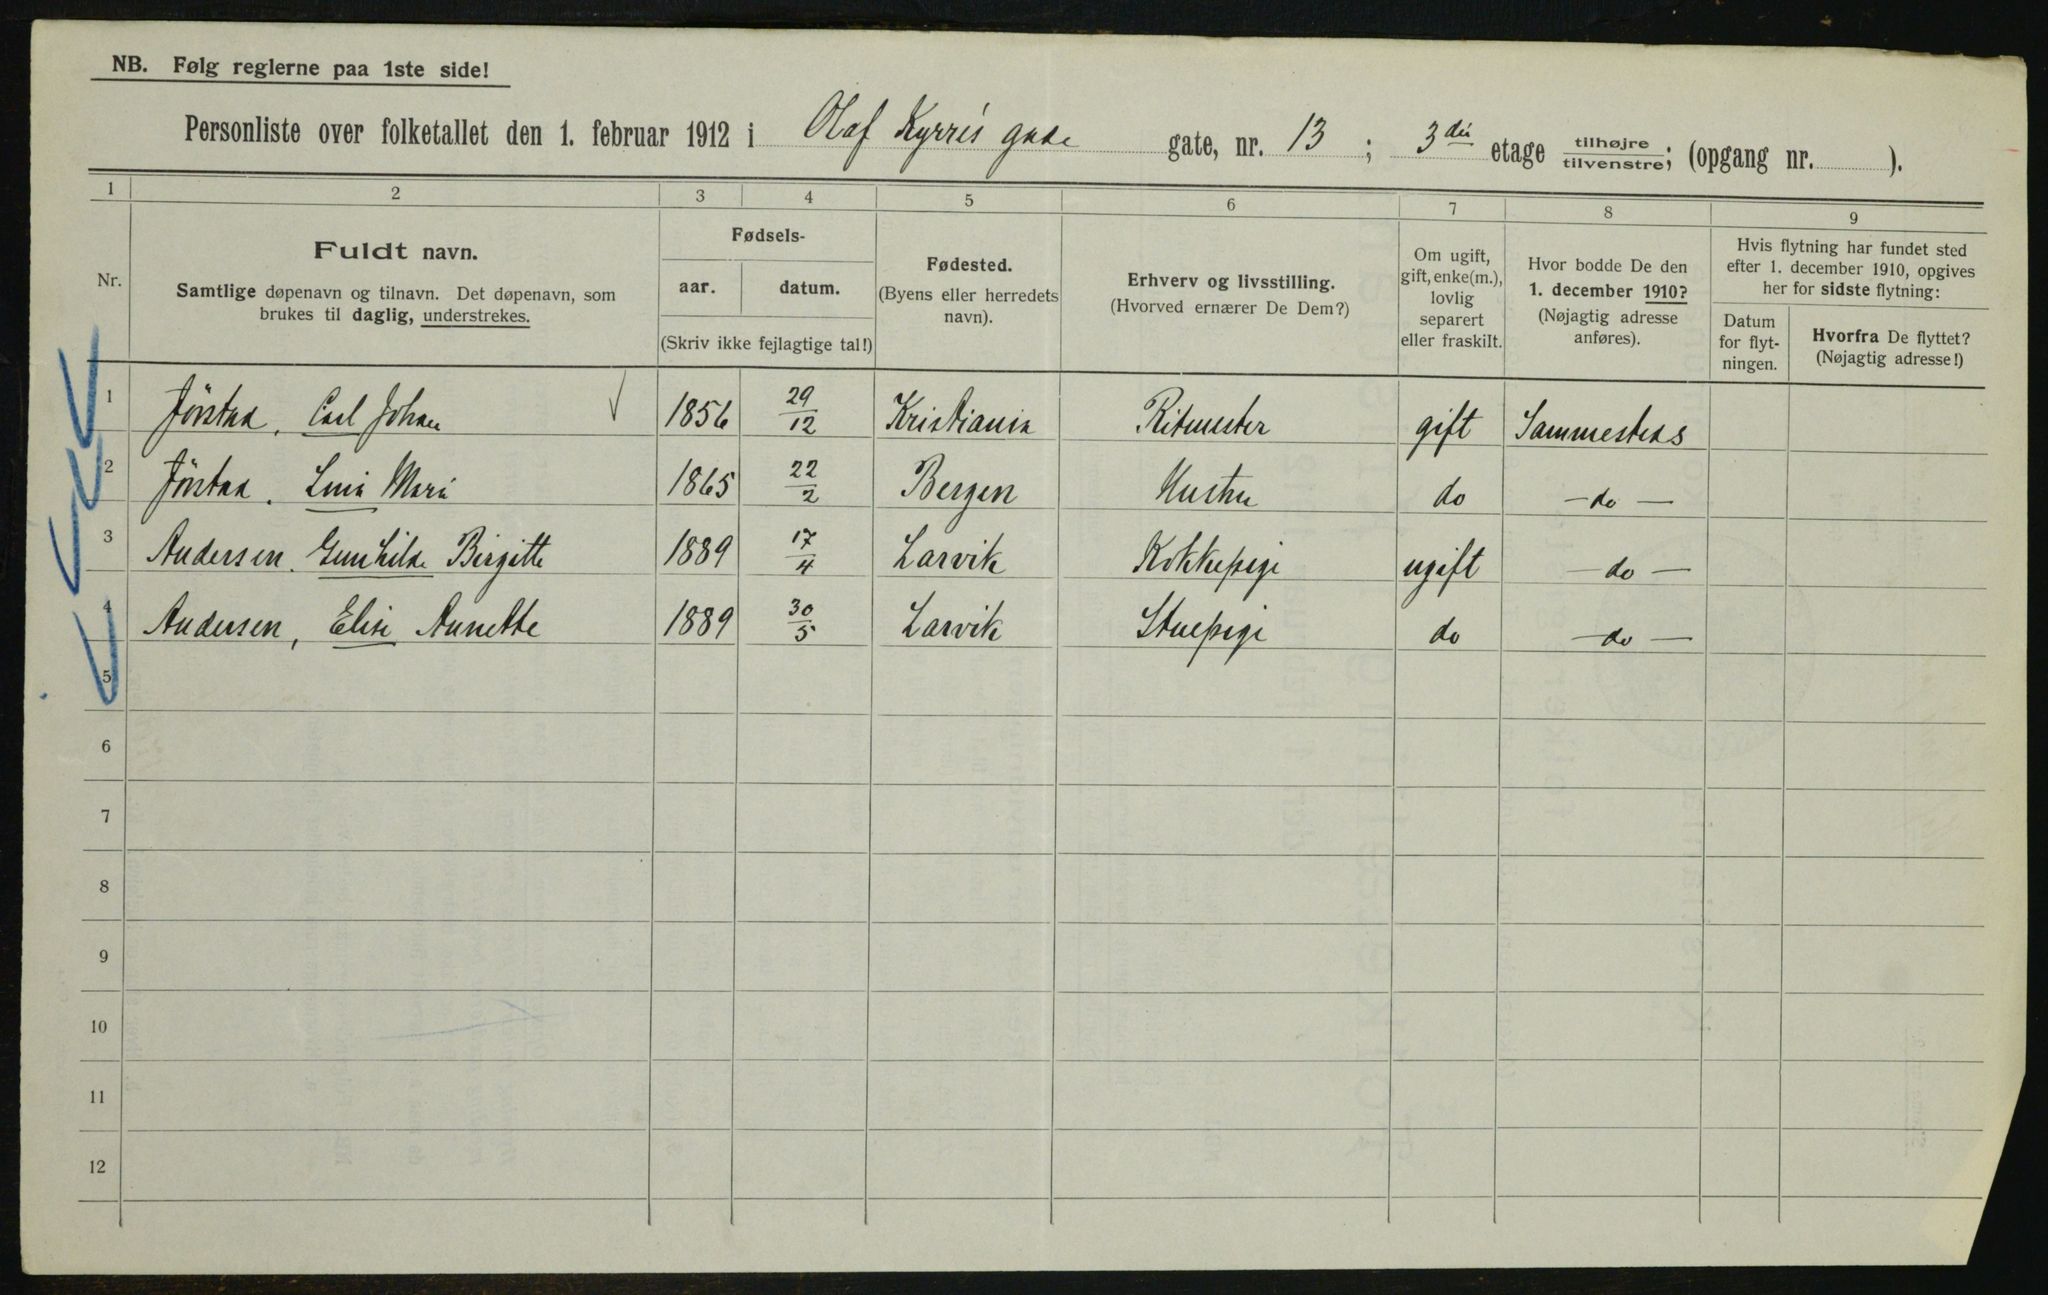 NB. Følg reglerne paa 1ste side!
Personliste over folketallet den 1. februar 1912 i Olaf Kyrres gade gate, nr. 13; 3die etage tilhøjre/tilvenstre; (opgang nr. ).
1 2 3 4 5 6 7 8 9
Nr.
Fuldt navn.
Samtlige døpenavn og tilnavn. Det døpenavn, som
brukes til daglig, understrekes.
Fødsels-
aar. datum.
(Skriv ikke fejlagtige tal!)
Fødested.
(Byens eller herredets
navn).
Erhverv og livsstilling.
(Hvorved ernærer De Dem?)
Om ugift,
gift, enke(m.),
lovlig
separert
eller fraskilt.
Hvor bodde De den
1. december 1910?
(Nøjagtig adresse
anføres).
Hvis flytning har fundet sted
efter 1. december 1910, opgives
her for sidste flytning:
Datum
for flyt-
ningen.
Hvorfra De flyttet?
(Nøjagtig adresse!)
1 Jørstad, Carl Johan 1856 29/12 Kristiania Ritmester gift Sammesteds
2 Jørstad. Lina Marie 1865 22/2 Bergen Hustru do -do-
3 Andersen. Gunhilde Birgitte 1889 17/4 Larvik Kokkepige ugift -do-
4 Andersen, Elise Annette 1889 30/5 Larvik Stuepige do -do-
5
6
7
8
9
10
11
12